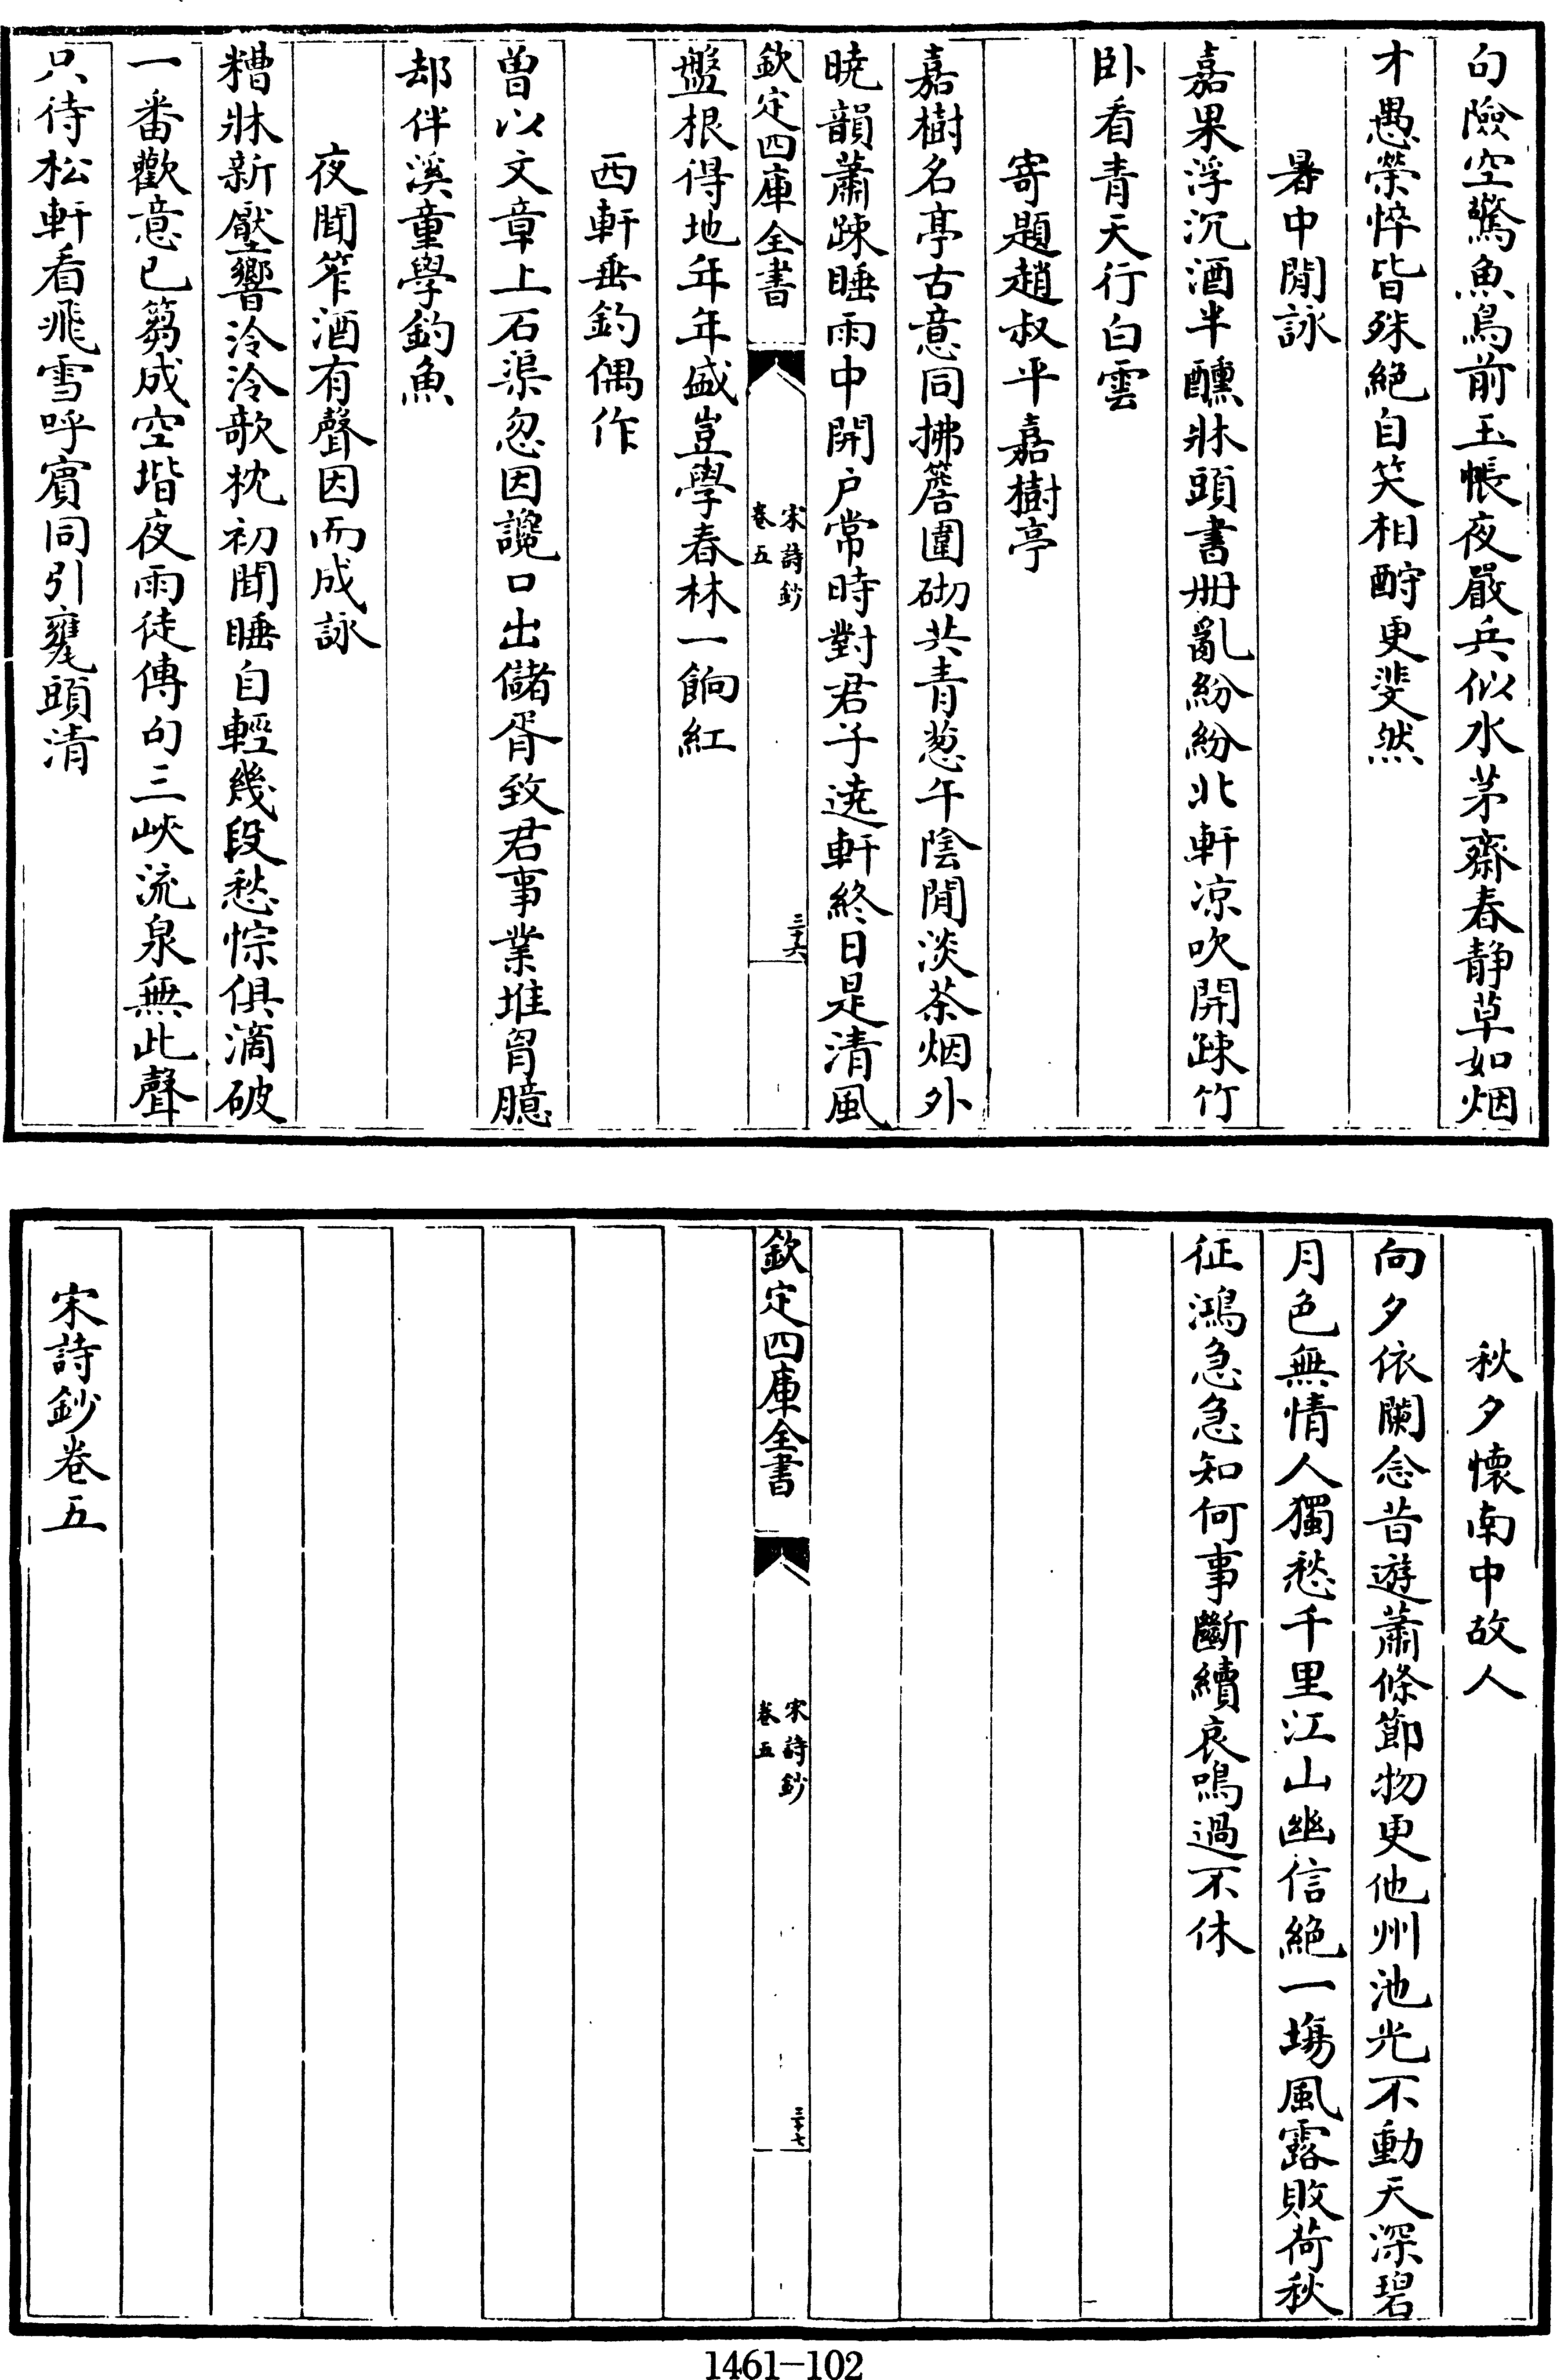 句險空驚魚鳥前玉帳夜嚴兵似水茅齋春静草如烟
才愚榮悴皆殊絕自笑相酧更斐然
暑中閒詠
嘉果浮沉酒半醺牀頭書册亂紛紛北軒凉吹開疎竹
卧看青天行白雲
寄題趙叔平嘉樹亭
嘉樹名亭古意同拂簷圍砌共青葱午陰閒淡茶烟外
曉韻蕭踈睡雨中開户常時對君子遶軒終日是清風
欽定四庫全書
宋詩鈔
卷五
三十六
盤根得地年年盛豈學春林一餉紅
西軒垂釣偶作
曾以文章上石渠忽因讒口出儲胥致君事業堆胷臆
却伴溪童學釣魚
夜聞笮酒有聲因而成詠
糟牀新壓響泠泠欹枕初聞睡自輕幾段愁悰俱滴破
一番歡意已篘成空堦夜雨徒傳句三峽流泉無此聲
只待松軒看飛雪呼賓同引甕頭清
秋夕懷南中故人
向夕依闌念昔遊蕭條節物更他州池光不動天深碧
月色無情人獨愁千里江山幽信絕一塲風露敗荷秋
征鴻急急知何事斷續哀鳴過不休
欽定四庫全書
宋詩鈔
卷五
三十七
宋詩鈔卷五
1461-102